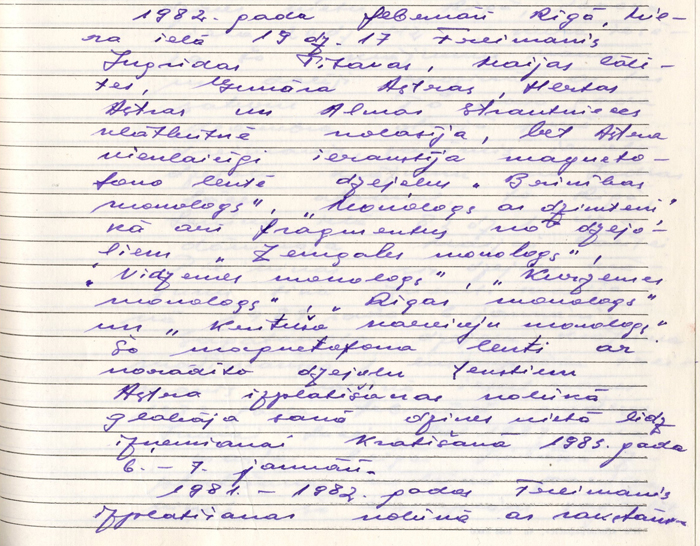 1982. gada februārī Rīgā, Mie-
ra ielā 19 dz. 17 Freimanis
Ingrīdas Titavas, Maijas
tes, Gunāra Astras, Hertas
Astras un Almas Strautnieces
klātbūtnē nolasīja, bet Astra
vienlaicīgi ierakstīja magneto-
fona lentē dzejoļus „
monologs", „Monologs ar dzimteni",
kā arī fragmentus no dzejo-
ļiem „Zemgales monologs",
„Vidzemes monologs", „Kurzemes
monologs", „Rīgas monologs"
un „ monologs"
Šo magnetofona lenti ar
norādīto dzejoļu tekstiem
Astra izplatīšanas nolūkā
glabāja savā dzīves vietā līdz
izņemšanai kratīšanā 1983. gada
6. – 7. janvārī.
1981. – 1982. gados Freimanis
izplatīšanas nolūkā ar